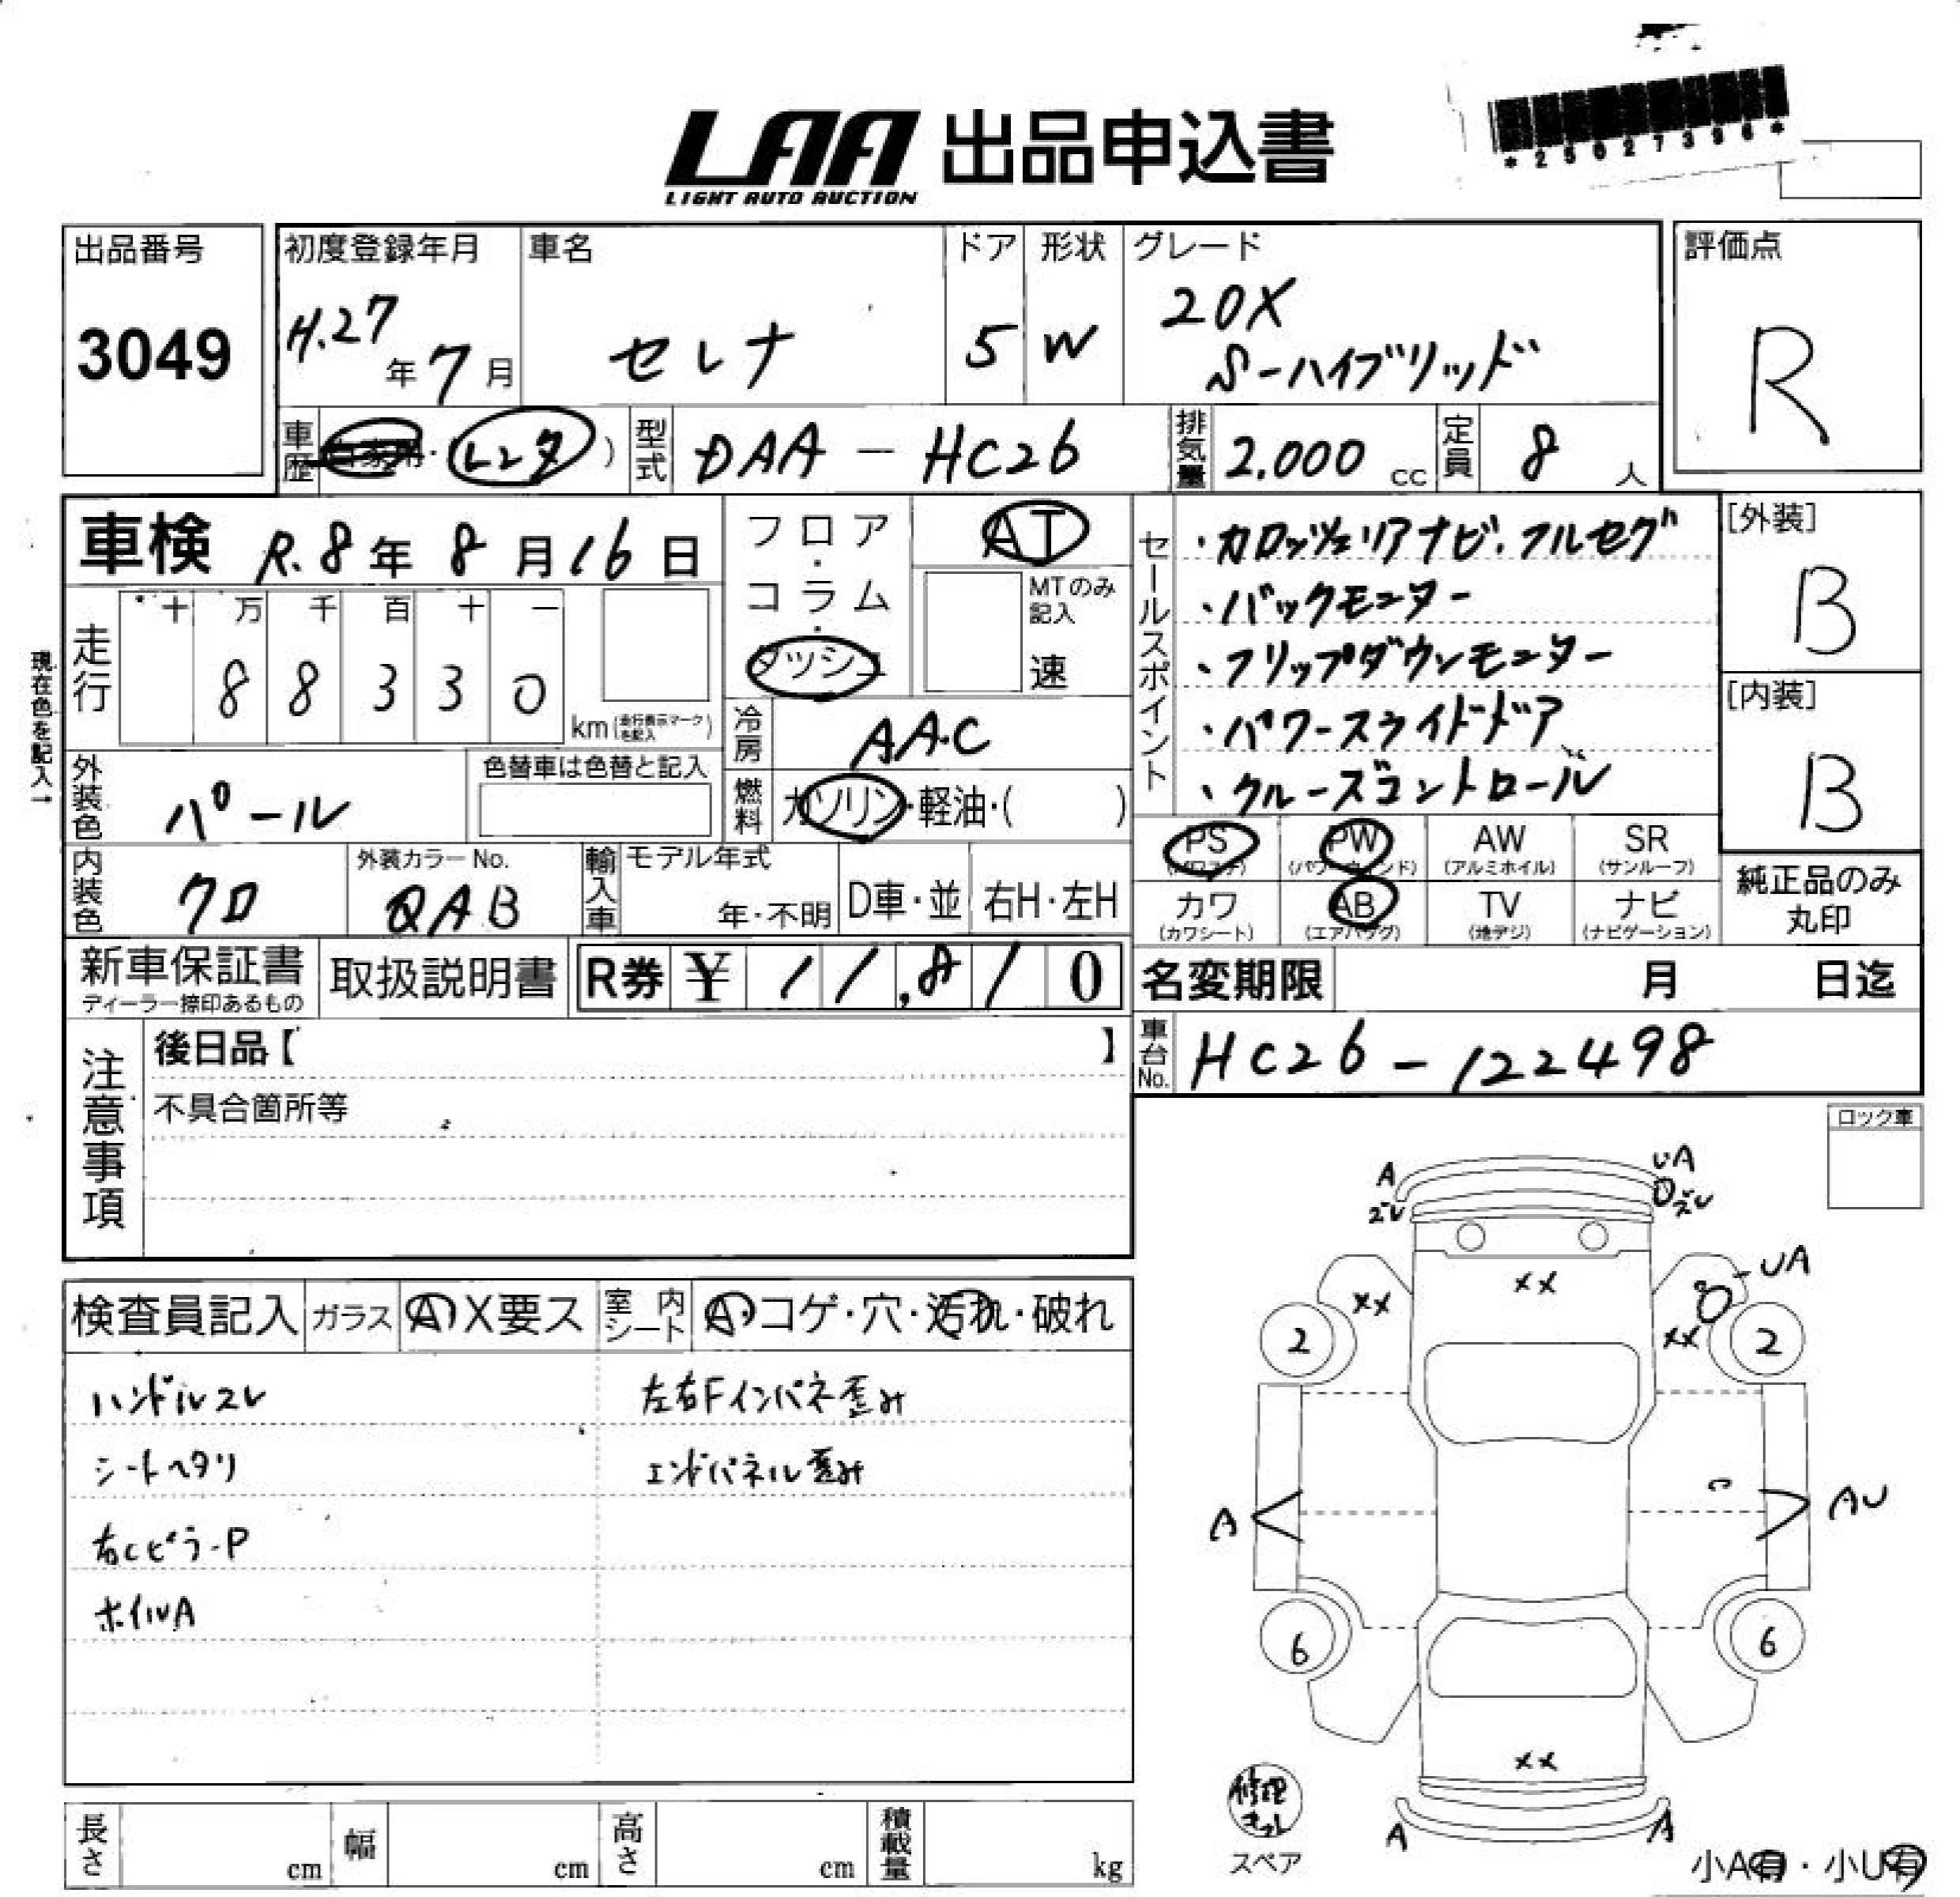 *25027396*
LAA 出品申込書
LIGHT AUTO AUCTION
出品番号
3049
初度登録年月
H.27年7月
車名
セレナ
ドア
5
形状
W
グレード
20X
S-ハイブリッド
評価点
R
車歴 自家用・(レンタ)
型式 DAA-HC26
排気量 2.000 cc
定員 8 人
車検 R.8年8月16日
フロア・コラム・ダッシュ
AT
MTのみ記入
速
セールスポイント
・カロッツェリアナビ.フルセグ
・バックモニター
・フリップダウンモニター
・パワースライドドア
・クルーズコントロール
[外装]
B
[内装]
B
現在色を記入→
走行
十 万 千 百 十 一
8 8 3 3 0
km(走行表示マークを記入)
冷房 AAC
外装色 パール
色替車は色替と記入
燃料 ガソリン・軽油・( )
内装色 クロ
外装カラーNo.
QAB
輸入車
モデル年式
年・不明
D車・並
右H・左H
PS
(パワステ)
PW
(パワーウィンド)
AW
(アルミホイル)
SR
(サンルーフ)
カワ
(カワシート)
AB
(エアバッグ)
TV
(地デジ)
ナビ
(ナビゲーション)
純正品のみ
丸印
新車保証書
ディーラー捺印あるもの
取扱説明書
R券 ¥ 11,810
名変期限 月 日迄
車台No. HC26-122498
注意事項
後日品【 】
不具合箇所等
ロック車
検査員記入
ガラス
A X要ス
室内シート
A・コゲ・穴・汚れ・破れ
ハンドルスレ
左右Fインパネ歪み
シートヘタリ
エンドパネル歪み
右CピラーP
ホイルA
A
ズレ
UA
ズレ
UA
XX
XX
XX
2
2
A
AU
6
6
XX
A
A
修理キット
スペア
小A有・小U有
長さ cm
幅 cm
高さ cm
積載量 kg